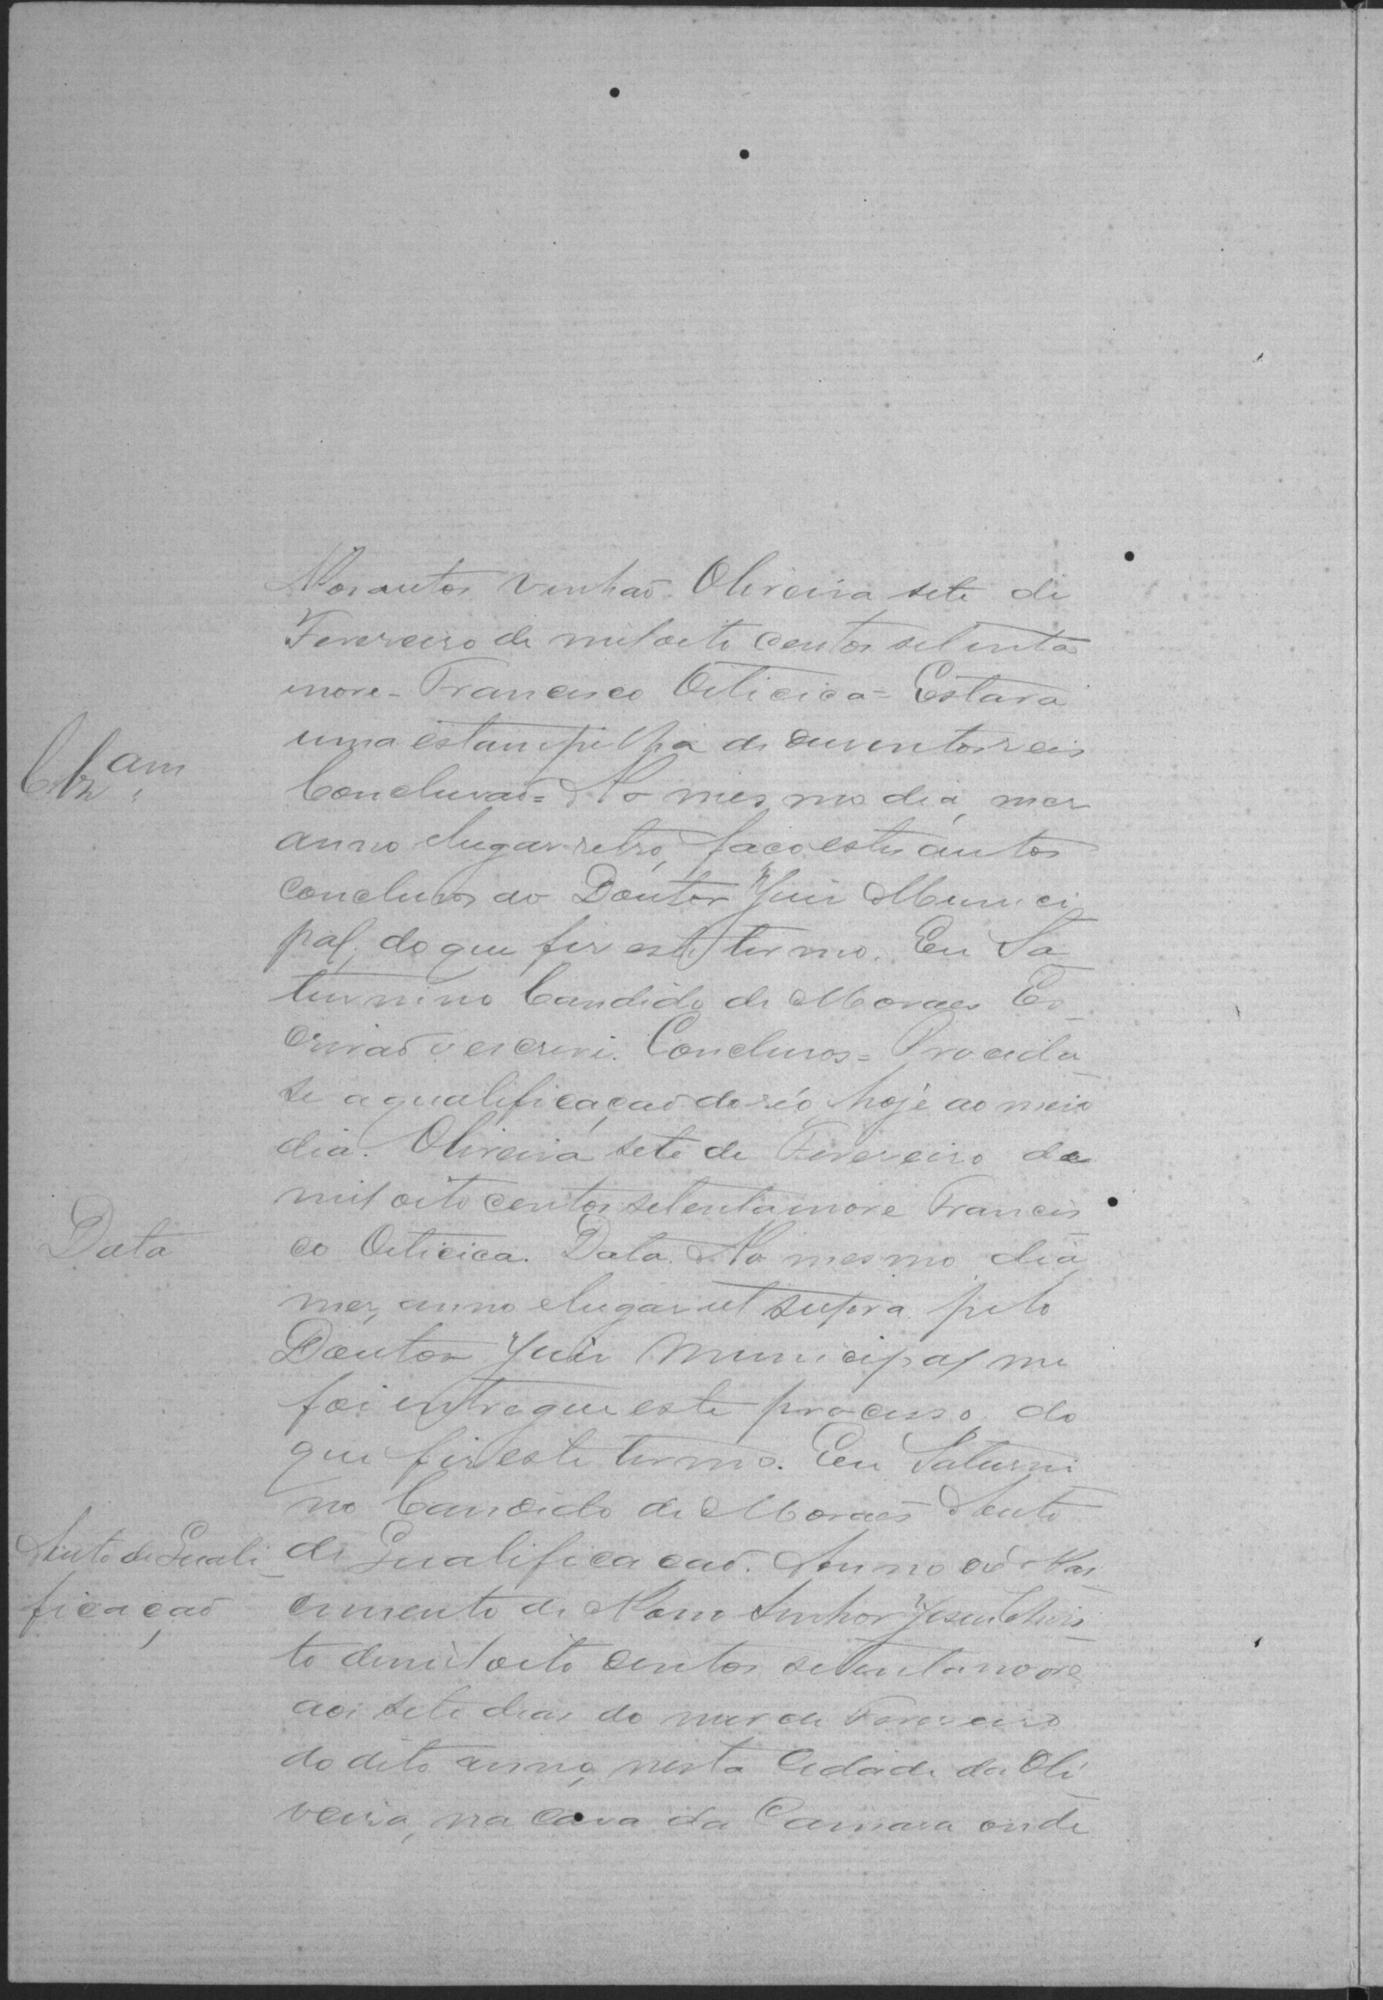 Nos autos venhaõ. Oliveira sete de
Fevereiro de mil oito centos setenta
e nove - Francisco Oiticica = Estava
uma estampilha de duzentos reis
Clzam
Conclusaõ = No mesmo dia, mez
anno e lugar retro, faco estes autos
conclusos ao Doutor Juiz Munici
pal, do que fiz este termo. Eu Sa
turnino Candido de Moraes Es
crivaõ o escrevi. Conclusos = Proceda
se a qualificaçaõ do réo hoje ao meio
dia. Oliveira sete de Fevereiro de
mil oito centos setenta e nove Francis
Data
co Oiticica. Data. No mesmo dia
mez, anno e lugar ut supra pelo
Doutor Juiz Municipal me
foi entregue este processo do
que fiz este termo. Eu Saturni
no Candido de Moraes Auto
Auto de Quali
ficaçaõ
de Qualificacaõ. Anno do Nas
cimento de Nosso Senhor Jesus Chris
to de mil oito centos setenta nove,
aos sete dias do mez de Fevereiro
do dito anno, nesta Cidade da Oli
veira, na casa da Camara onde